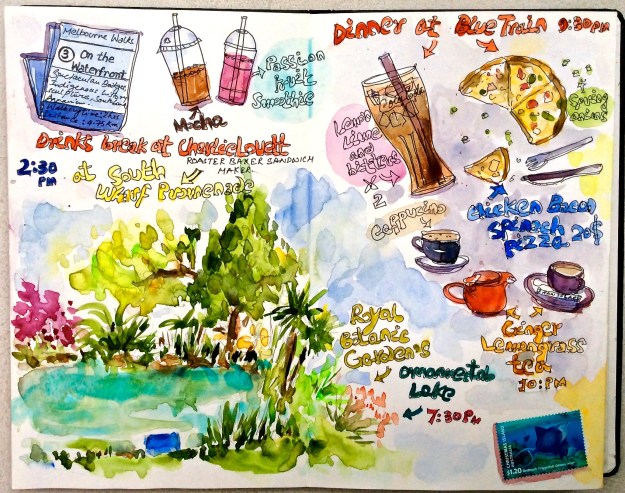 Melbourne Walks
3 On the
Waterfront
Spectacular Bridges
Indigenous
sculptures, South
Passion
fruit
Smoothie
Mocha
Drinks break at Charlie Lovett
ROASTER BAKER SANDWICH
MAKER
2:30
PM
at South
Wharf Promenade
Dinner at Blue Train 9:30PM
Lemon
Lime
and
bitters
x 2
Spring
onion
Cappucino
chicken Bacon
spinach
pizza 20$
Ginger
Lemongrass
tea
10:PM
Royal
Botanic
Garden's
ornamental
Lake
7:30PM
CHRISTMAS ISLAND
AUSTRALIA
$1.20